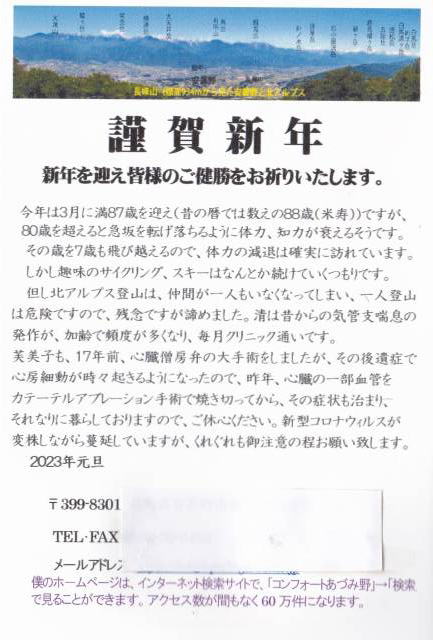 長峰山(標高934mから見た安曇野と北アルプス
謹賀新年
新年を迎え皆様のご健勝をお祈りいたします。
今年は3月に満87歳を迎え(昔の暦では数えの88歳(米寿))ですが、
80歳を超えると急坂を転げ落ちるように体力、知力が衰えるそうです。
その歳を7歳も飛び越えるので、体力の減退は確実に訪れています。
しかし趣味のサイクリング、スキーはなんとか続けていくつもりです。
但し北アルプス登山は、仲間が一人もいなくなってしまい、一人登山
は危険ですので、残念ですが諦めました。清は昔からの気管支喘息の
発作が、加齢で頻度が多くなり、毎月クリニック通いです。
芙美子も、17年前、心臓僧房弁の大手術をしましたが、その後遺症で
心房細動が時々起きるようになったので、昨年、心臓の一部血管を
カテーテルアブレーション手術で焼き切ってから、その症状も治まり、
それなりに暮らしておりますので、ご休心ください。新型コロナウィルスが
変株しながら蔓延していますが、くれぐれも御注意の程お願い致します。
2023年元旦
〒399-8301
TEL・FAX
メールアドレス
僕のホームページは、インターネット検索サイトで、「コンフォートあづみ野」→「検索
で見ることができます。アクセス数が間もなく60万件になります。